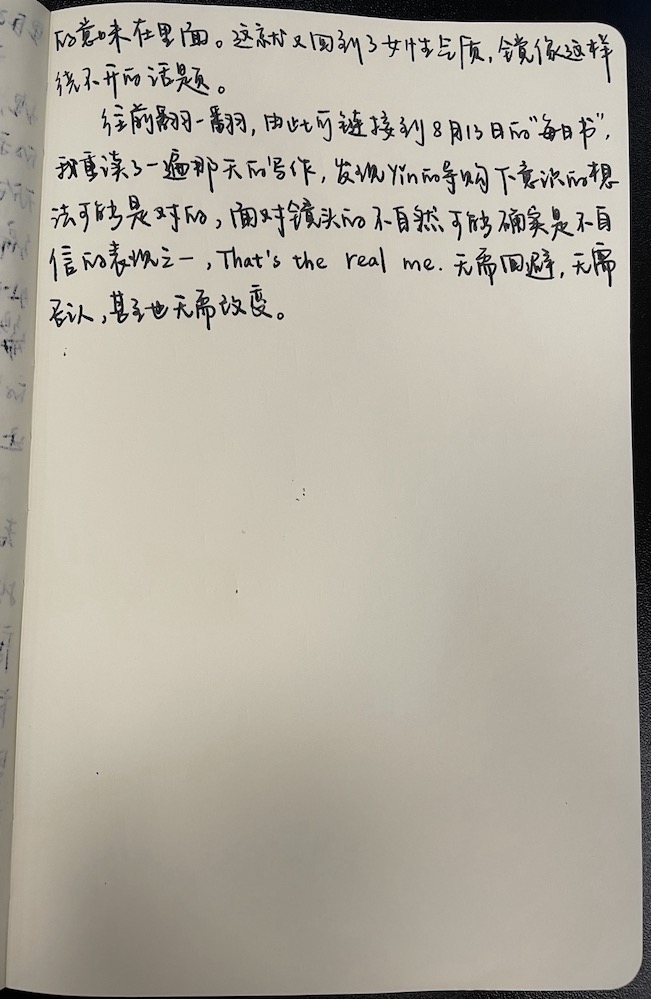 的意味在里面。这就又回到了女性气质，镜像这样
绕不开的话题。
往前翻一翻，由此可链接到8月13日的“每日书”，
我重读了一遍那天的写作，发现Yin的导购下意识的想
法可能是对的，面对镜头的不自然可能确实是不自
信的表现之一，That's the real me. 无需回避，无需
否认，甚至也无需改变。